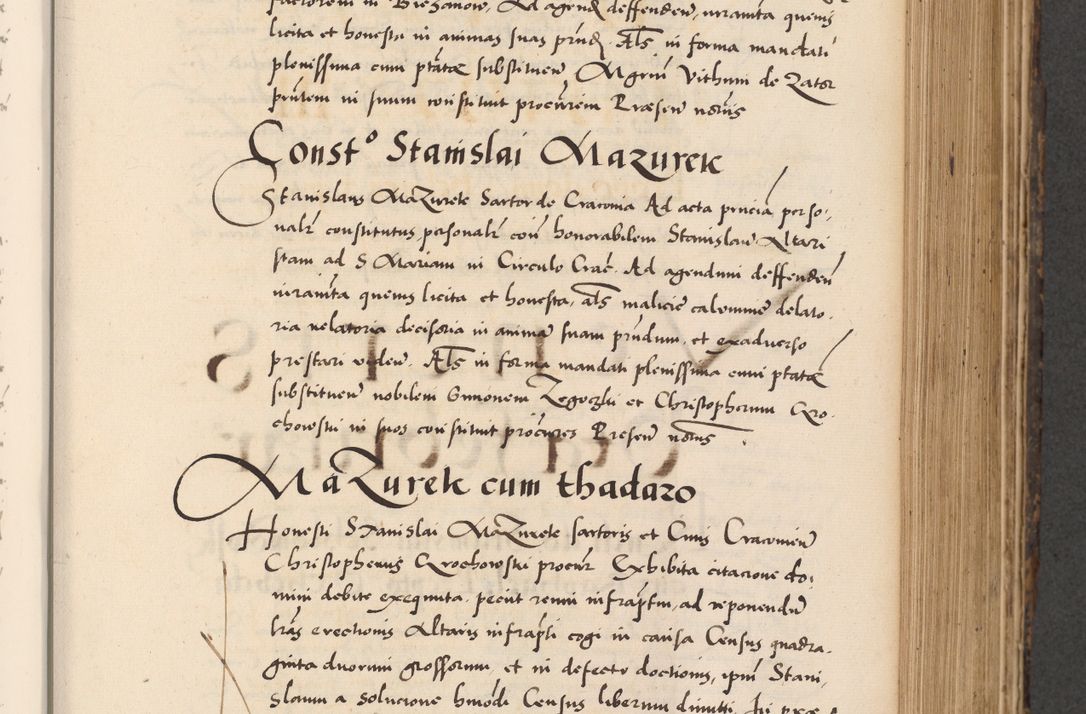 factorem in Biezanow, Ad agend deffenden, iuramta quevis
licita et honesta in animas suas prnd. Als in forma mandati
plenissima cum ptate substituen Mgrum Vithum de Zator
pntem in suum constituit procurem Presen notus
Const° Stanislai Mazurek
Stanislaus Mazurek Sartor de Cracovia Ad acta pncia perso,
nalr constitutus, personalr con honorabilem Stanislaum Altari
stam ad S Mariam in Circulo Crac. Ad agendum deffenden
iuramta quevis licita et honesta, als malicie calumnie delato,
ria relatoria decisoria in animam suam prndum, et exadverso
prestari viden. Als in forma mandati plenissima cum ptate
substituen nobilem Simonem Zegoczki et Christopherum Gro,
chowski in suos constituit procures Presen notus
Mazurek cum thadazo
Honesti Stanislai Mazurek sartoris et Civis Cracovien
Christopherus Grochowski procur Exhibita citacione do,
mini debite exequuta, peciit reum infrascptum, ad reponendum
lras erectionis Altaris infrapti cogi in causa Census quadra,
ginta duorum grossorum, et in defectu doctionis, ipum Stani,
slaum a solucione hmodi Census liberum dimitti. In prae